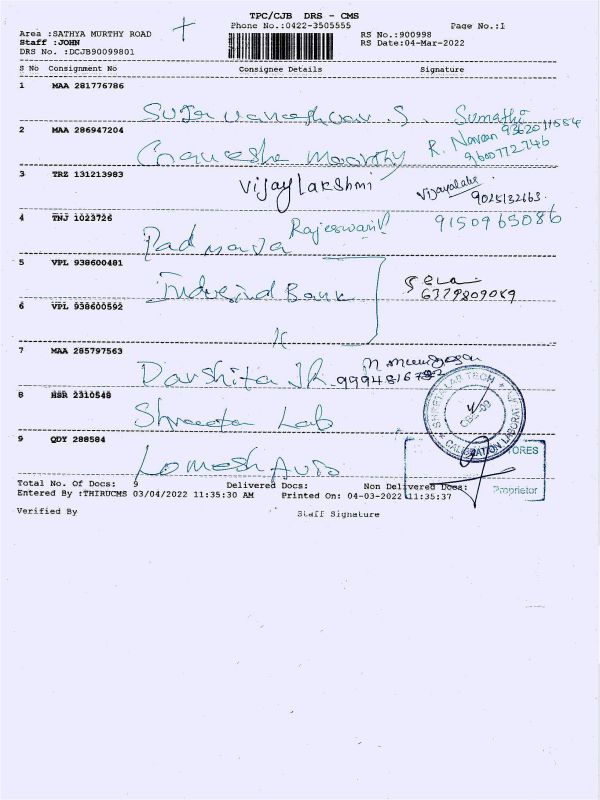 TPC/CJB DRS - CMS
Phone No.:0422-3505555 Page No.:1
Area :SATHYA MURTHY ROAD RS No.:900998
Staff :JOHN RS Date:04-Mar-2022
DRS No. :DCJB90099801
S No Consignment No Consignee Details Signature
1 MAA 281776786
S. Sumathi
2 MAA 286947204
Moorthy R. Naveen 9600772746
3 TRZ 131213983
Vijaylakshmi Vijayalakshmi
4 TNJ 1023726
Padmava Rajeswari 9150965086
5 VPL 938600481
Indusind Bank
6379809089
6 VPL 938600592
7 MAA 285797563
Darshita JR
8 HSR 2310548
Shreeta Lab
SHREETALAB TECH
CALIBRATION LABORATORY
CBE-09
9 QDY 288584
Lomesh Auto
STORES
Proprietor
Total No. Of Docs: 9 Delivered Docs: Non Delivered Docs:
Entered By :THIRUCMS 03/04/2022 11:35:30 AM Printed On: 04-03-2022 11:35:37
Verified By Staff Signature